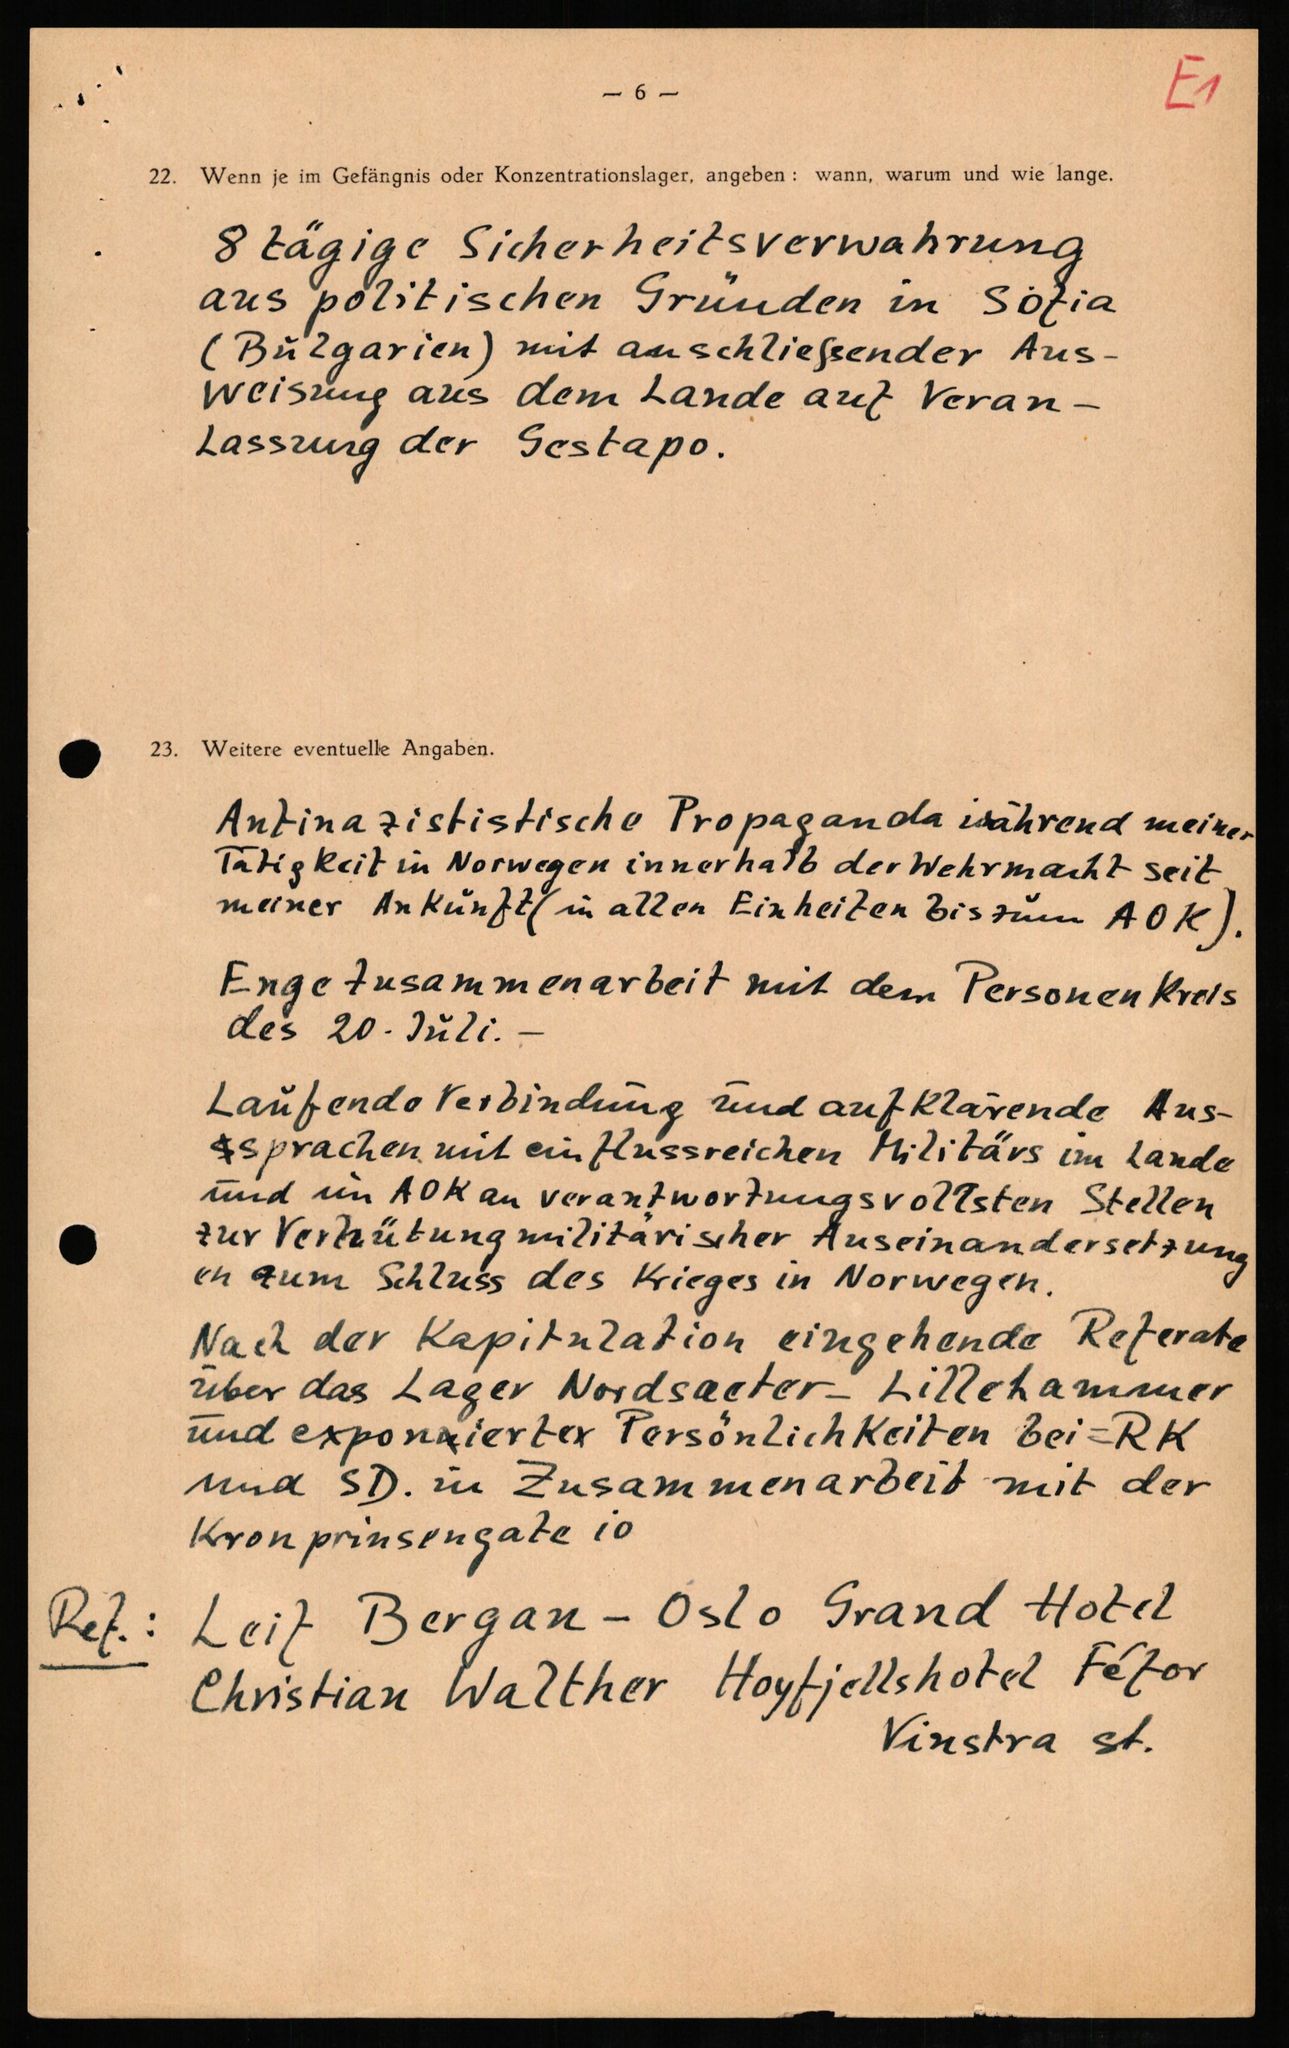 — 6 —
E1
22. Wenn je im Gefängnis oder Konzentrationslager, angeben: wann, warum und wie lange.
8 tägige Sicherheitsverwahrung
aus politischen Gründen in Sofia
(Bulgarien) mit anschließender Aus-
weisung aus dem Lande auf Veran-
lassung der Gestapo.
23. Weitere eventuelle Angaben.
Antinazististische Propaganda während meiner
Tätigkeit in Norwegen innerhalb der Wehrmacht seit
meiner Ankunft (in allen Einheiten bis zum AOK).
Enge Zusammenarbeit mit dem Personenkreis
des 20. Juli. —
Laufende Verbindung und aufklärende Aus-
sprachen mit einflussreichen Militärs im Lande
und im AOK an verantwortungsvollsten Stellen
zur Verhütung militärischer Auseinandersetzung
en zum Schluss des Krieges in Norwegen.
Nach der Kapitulation eingehende Referate
über das Lager Nordsaeter - Lillehammer
und exponierter Persönlichkeiten bei RK
und SD. in Zusammenarbeit mit der
Kronprinsengate 10
Ref.: Leif Bergan - Oslo Grand Hotel
Christian Walther Hoyfjellshotel Féfor
Vinstra st.